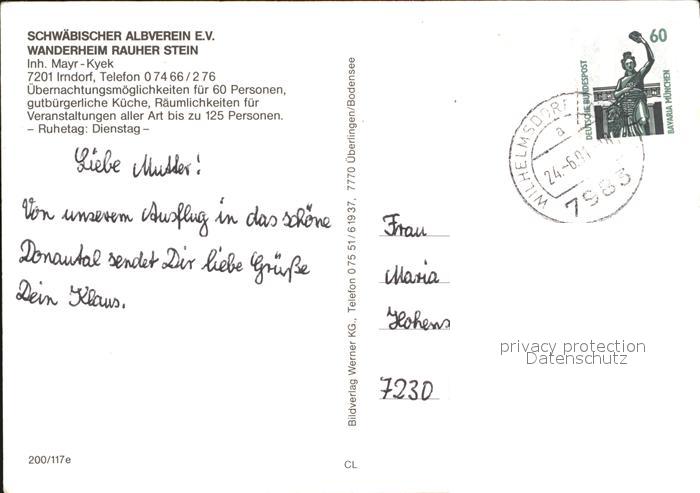 SCHWÄBISCHER ALBVEREIN E.V.
WANDERHEIM RAUHER STEIN
Inh. Mayr-Kyek
7201 Irndorf, Telefon 0 74 66 / 2 76
Übernachtungsmöglichkeiten für 60 Personen,
gutbürgerliche Küche, Räumlichkeiten für
Veranstaltungen aller Art bis zu 125 Personen.
– Ruhetag: Dienstag –
Liebe Mutter!
Von unserem Ausflug in das schöne
Donautal sendet Dir liebe Grüße
Dein Klaus.
200/117e
Bildverlag Werner KG., Telefon 0 75 51 / 6 19 37, 7770 Überlingen/Bodensee
CL
60
DEUTSCHE BUNDESPOST
BAVARIA MÜNCHEN
WILHELMSDORF
a
24.-6.91
7983
Frau
Maria
Hohens
7230
privacy protection
Datenschutz